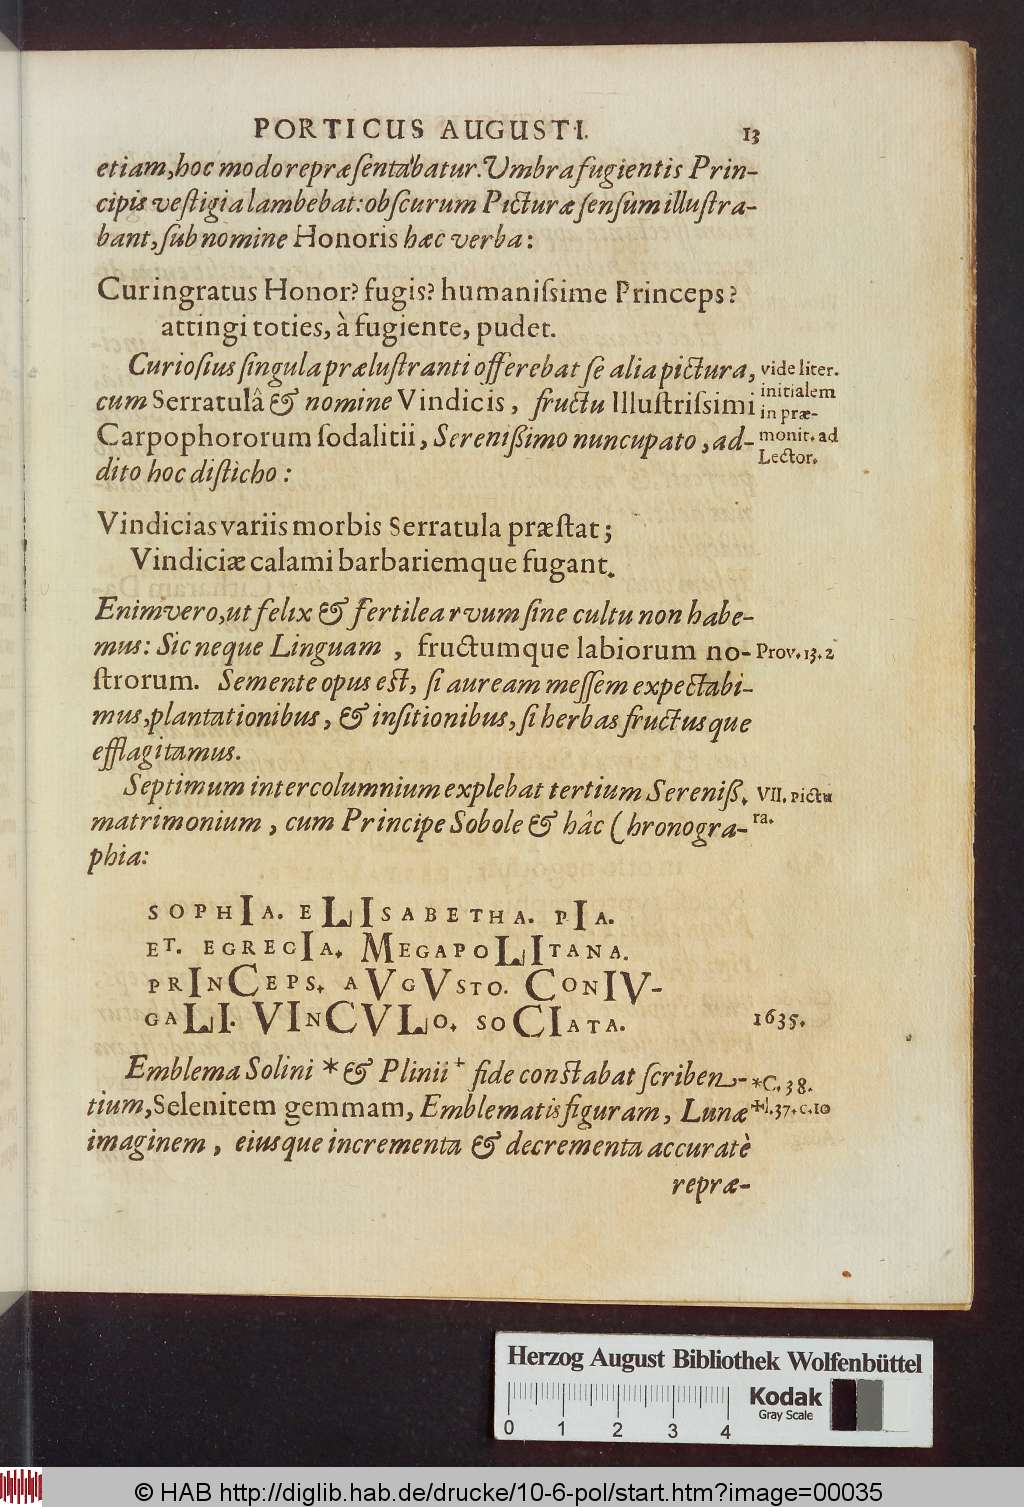 PORTICUS AUGUSTI. 13
etiam, hoc modo repræſentabatur. Umbra fugientis Prin-
cipis veſtigia lambebat: obſcurum Picturæ ſenſum illuſtra-
bant, ſub nomine Honoris hæc verba:
Cur ingratus Honor? fugis? humaniſsime Princeps?
attingi toties, à fugiente, pudet.
Curioſius ſingula præluſtranti offerebat ſe alia pictura,
cum Serratulâ & nomine Vindicis, fructu Illuſtriſsimi
Carpophororum ſodalitii, Sereniſſimo nuncupato, ad-
dito hoc diſticho:
vide liter.
initialem
in præ-
monit. ad
Lector.
Vindicias variis morbis Serratula præſtat;
Vindiciæ calami barbariemque fugant.
Enimvero, ut felix & fertile arvum ſine cultu non habe-
mus: Sic neque Linguam, fructumque labiorum no-
ſtrorum. Semente opus eſt, ſi auream meſſem expectabi-
mus, plantationibus, & inſitionibus, ſi herbas fructusque
efflagitamus.
Prov. 13. 2
Septimum intercolumnium explebat tertium Sereniſſ.
matrimonium, cum Principe Sobole & hâc Chronogra-
phia:
VII. pictu
ra.
SOPHIA. ELISABETHA. PIA.
ET. EGREGIA. MEGAPOLITANA.
PRINCEPS. AVGVSTO. CONIV-
GALI. VINCVLO. SOCIATA.
1635.
Emblema Solini * & Plinii + fide conſtabat ſcriben-
tium, Selenitem gemmam, Emblematis figuram, Lunæ
imaginem, eiusque incrementa & decrementa accuratè
repræ-
*C. 38.
+l. 37. c. 10
Herzog August Bibliothek Wolfenbüttel
0 1 2 3 4
Kodak
Gray Scale
© HAB http://diglib.hab.de/drucke/10-6-pol/start.htm?image=00035